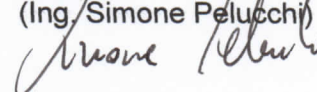 (Ing. Simone Pelucchi)
Simone Pelucchi